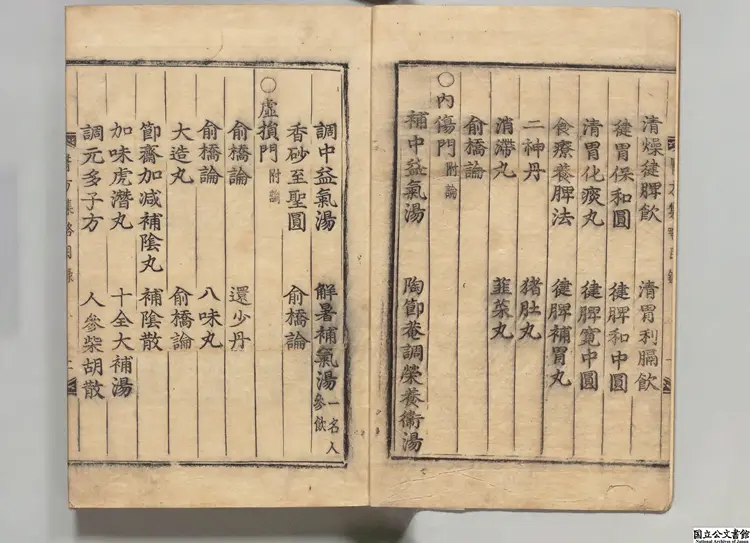 清燥健脾飲　清胃利膈飲
健胃保和圓　健脾和中圓
清胃化痰丸　健脾寬中圓
食療養脾法　健脾補胃丸
二神丹　猪肚丸
消滯丸　韮菜丸
俞橋論
○內傷門 附論
補中益氣湯　陶節菴調榮養衛湯
調中益氣湯　解暑補氣湯 一名人參飲
香砂至聖圓　俞橋論
○虛損門 附論
俞橋論　還少丹
俞橋論　八味丸
大造丸　俞橋論
節齋加減補陰丸　補陰散
加味虎潛丸　十全大補湯
調元多子方　人參柴胡散
醫方集略目錄
国立公文書館
National Archives of Japan